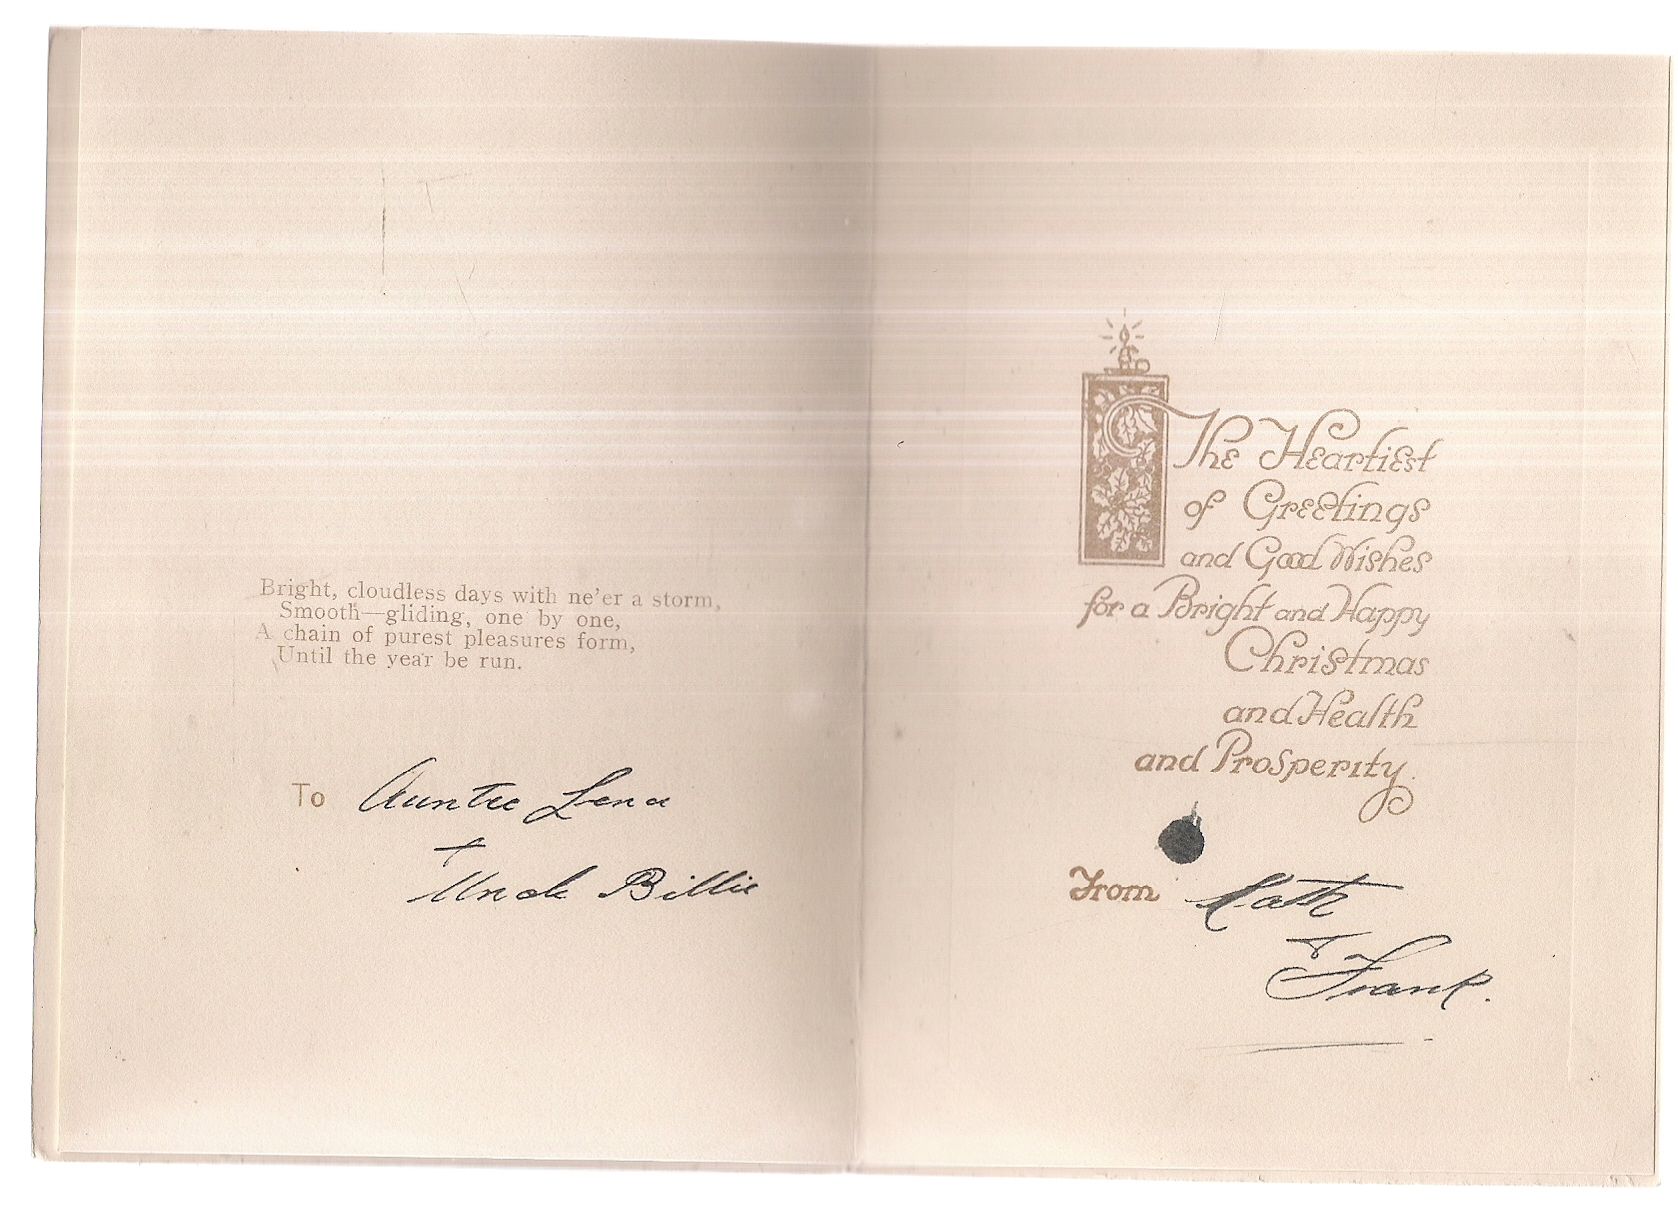 Bright, cloudless days with ne'er a storm,
Smooth—gliding, one by one,
A chain of purest pleasures form,
Until the year be run.
To Auntie Lena
+
Uncle Billie
The Heartiest
of Greetings
and Good Wishes
for a Bright and Happy
Christmas
and Health
and Prosperity.
From Kath
&
Frank.